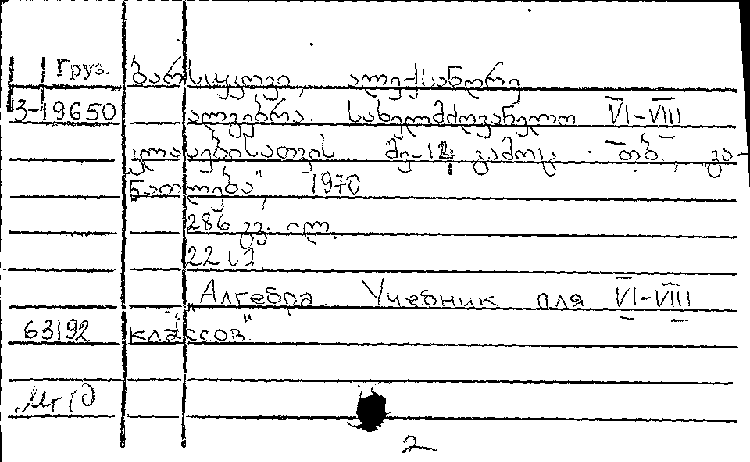 Груз. ბარსუკოვი, ალექსანდრე
3-19650 ალგებრა. სახელმძღვანელო VI-VIII
კლასებისათვის. მე-12 გამოც. თბ., გა-
ნათლება", 1970
286 გვ. ილ.
22
"Алгебра. Учебник для VI-VIII
63192 классов"
2